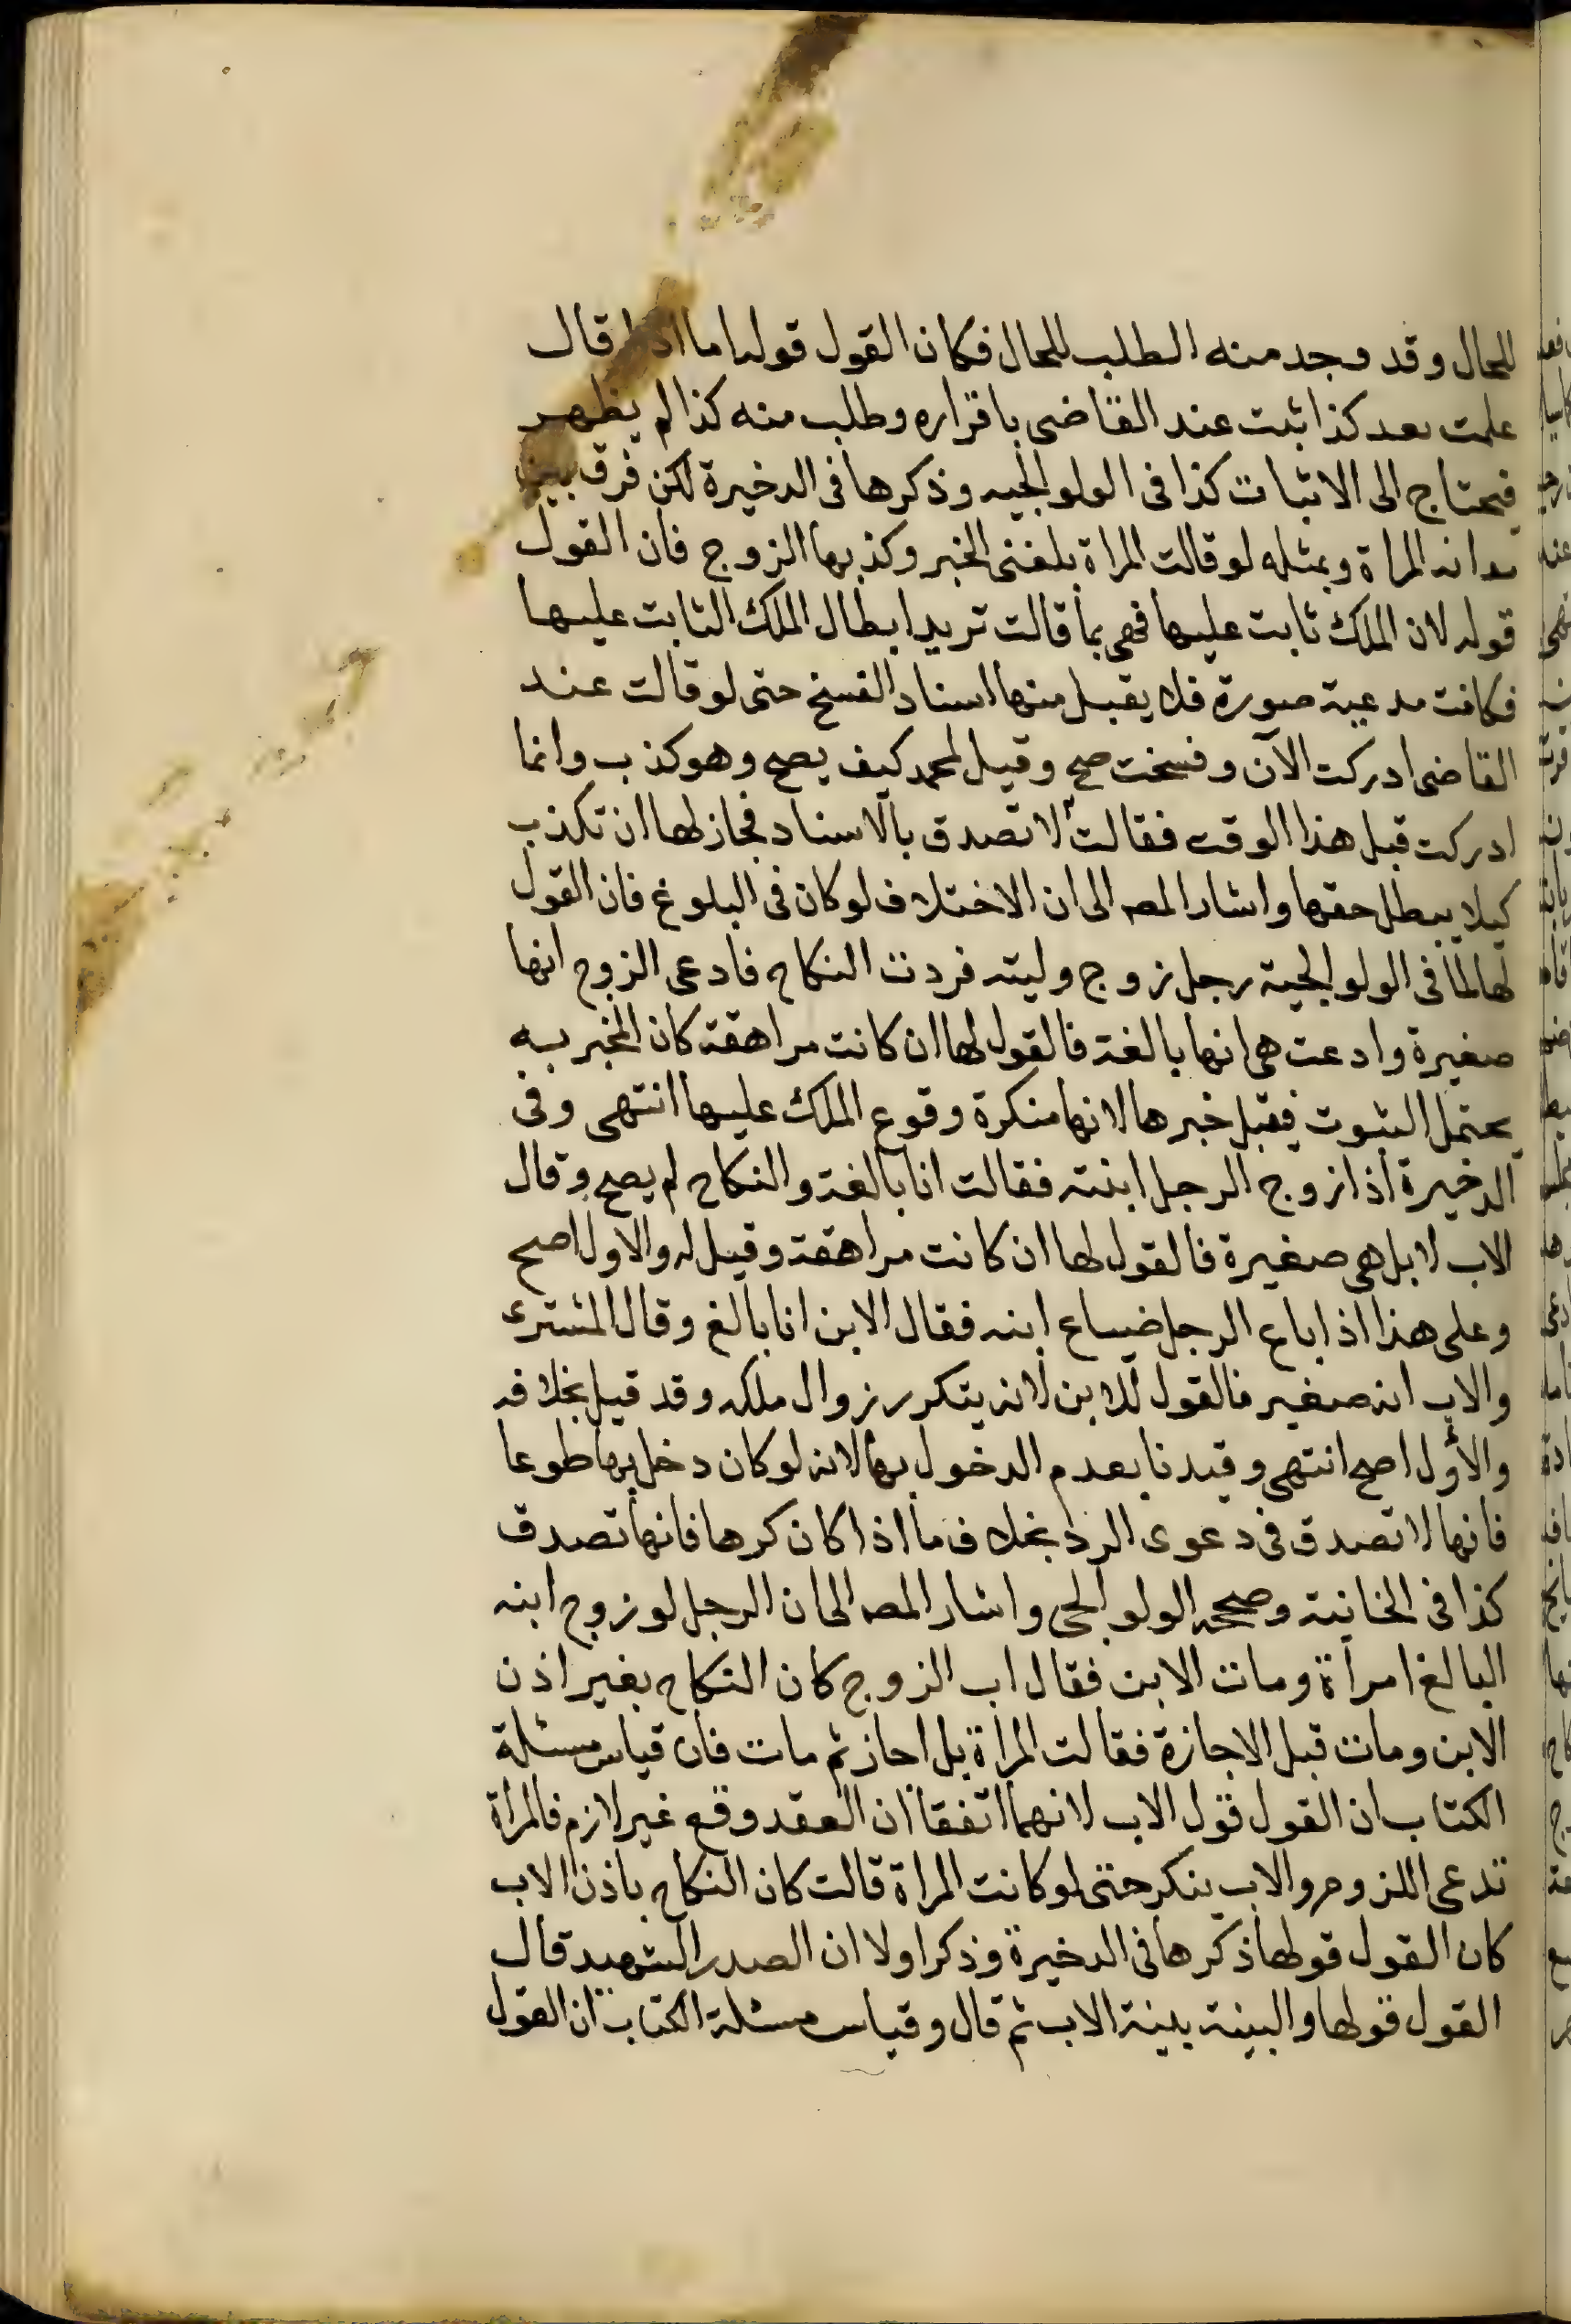 للحال وقد وجد منه الطلب للحال فكان القول قوله اما اذا قال
علمت بعد كذا ثبت عند القاضى باقراره وطلب منه كذا لم يظهر
فيحتاج الى الاثبات كذا فى الولوالجيه وذكرها فى الدخيرة لكن فرق بين
بدانه المراة وبمثله لو قالت المراة بلغنى الخبر وكذبها الزوج فان القول
قوله لان الملك ثابت عليها فهى بما قالت تريد ابطال الملك الثابت عليها
فكانت مدعية صورة فلا يقبل منها اسناد الفسخ حتى لو قالت عند
القاضى ادركت الآن وفسخت صح وقيل لمحمد كيف يصح وهو كذب وانما
ادركت قبل هذا الوقت فقالت لا تصدق بالاسناد فجاز لها ان تكذب
كيلا يبطل حقها واشار المصه الى ان الاختلاف لو كان فى البلوغ فان القول
لها لما فى الولوالجية رجل زوج وليته فردت النكاح فادعى الزوج انها
صغيرة وادعت هى انها بالغة فالقول لها ان كانت مراهقة كان المخبر به
يحتمل الثبوت فيقبل خبرها لانها منكرة وقوع الملك عليها انتهى وفى
الدخيرة اذا زوج الرجل ابنته فقالت انا بالغة والنكاح لم يصح وقال
الاب لا بل هى صغيرة فالقول لها ان كانت مراهقة وقيل له والاول اصح
وعلى هذا اذا باع الرجل ضياع ابنه فقال الابن انا بالغ وقال المشترى
والاب انه صغير فالقول للابن لانه يتكرر زوال ملكه وقد قيل بخلافه
والأول اصح انتهى وقيدنا بعدم الدخول بها لانه لو كان دخل بها طوعا
فانها لا تصدق فى دعوى الرد بخلاف ما اذا كان كرها فانها تصدق
كذا فى الخانية وصححه الولوالجى واشار المصه الى ان الرجل لو زوج ابنه
البالغ امرأة ومات الابن فقال اب الزوج كان النكاح بغير اذن
الابن ومات قبل الاجازة فقالت المراة بل احاز ثم مات فان قياس مسئلة
الكتاب ان القول قول الاب لانهما اتفقا ان العقد وقع غير لازم فالمراة
تدعى اللزوم والاب ينكر حتى لو كانت المراة قالت كان النكاح باذن الاب
كان القول قولها ذكرها فى الدخيرة وذكر اولا ان الصدر الشهيد قال
القول قولها والبينة بينة الاب ثم قال وقياس مسئلة الكتاب ان القول